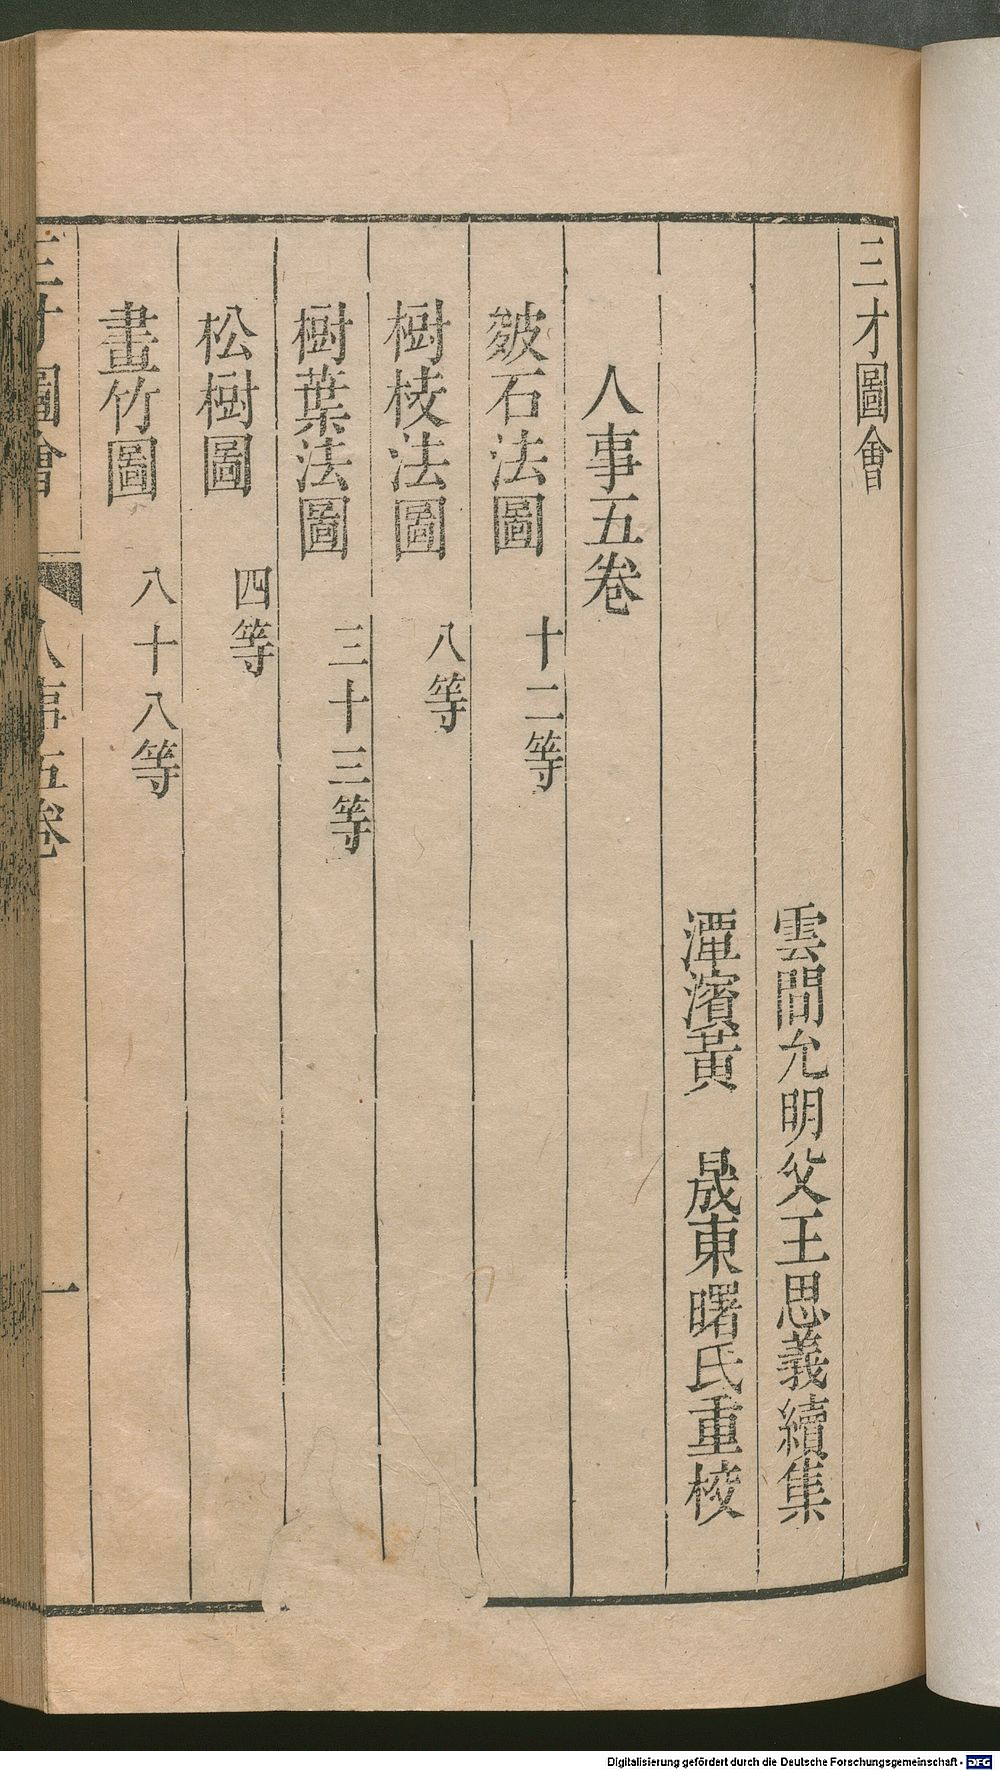 三才圖會
雲間允明父王思義續集
潭濱黃　晟東曙氏重校
人事五卷
皴石法圖　十二等
樹枝法圖　八等
樹葉法圖　三十三等
松樹圖　四等
畫竹圖　八十八等
三才圖會　人事五卷　一
Digitalisierung gefördert durch die Deutsche Forschungsgemeinschaft - DFG